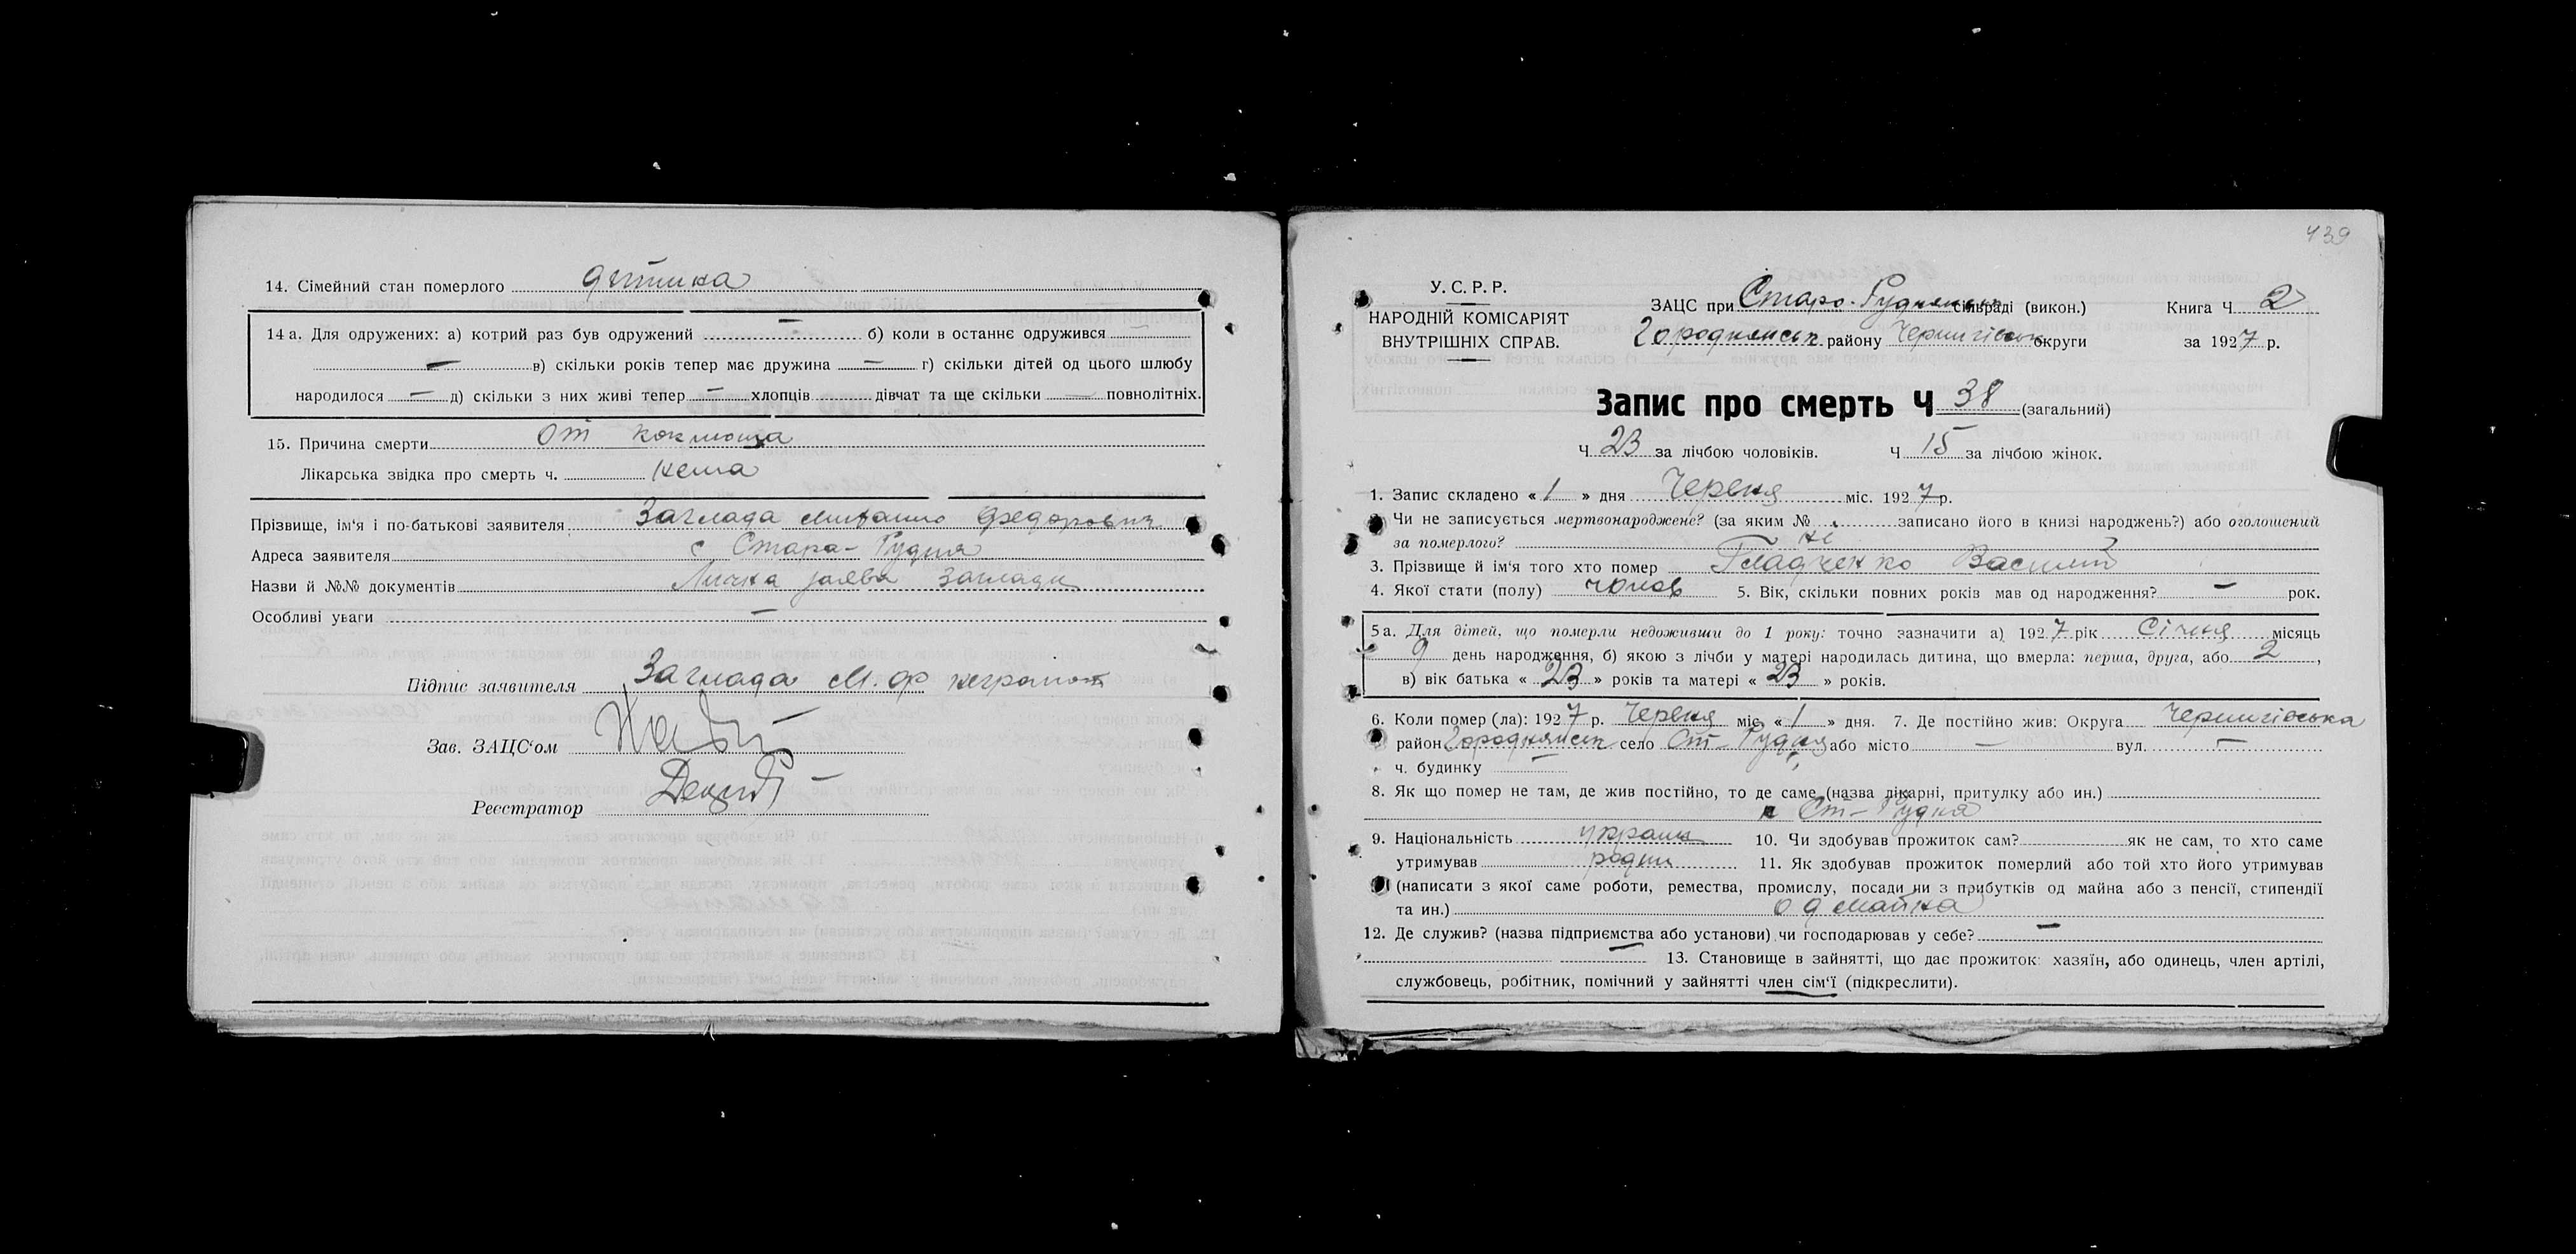 14. Сімейний стан померлого дитина
14 а. Для одружених: а) котрий раз був одружений — б) коли в останнє одружився —
— в) скільки років тепер має дружина — г) скільки дітей од цього шлюбу
народилося — д) скільки з них живі тепер — хлопців дівчат та ще скільки — повнолітніх.
15. Причина смерти От коклюша
Лікарська звідка про смерть ч. нема
Прізвище, ім'я і по-батькові заявителя Заглада Михайло Федорович
Адреса заявителя с Стара-Рудня
Назви й №№ документів заява Заглади
Особливі уваги —
Підпис заявителя Заглада М. Ф неграмот
Зав. ЗАЦС'ом
Реєстратор
439
У. С. Р. Р.
НАРОДНІЙ КОМІСАРІЯТ
ВНУТРІШНІХ СПРАВ.
ЗАЦС при Старо-Руднянськ сільраді (викон.) Книга Ч 2
Городнянськ району Чернигівськ округи за 1927 р.
Запис про смерть Ч 38 (загальний)
Ч 23 за лічбою чоловіків. Ч 15 за лічбою жінок.
1. Запис складено « 1 » дня Червня міс. 1927 р.
2. Чи не записується мертвонароджене? (за яким № записано його в книзі народжень?) або оголошений
за померлого? не
3. Прізвище й ім'я того хто помер Гладченко Василий
4. Якої стати (полу) чолов 5. Вік, скільки повних років мав од народження? — рок.
5 а. Для дітей, що померли недоживши до 1 року: точно зазначити а) 1927 рік Січня місяць
9 день народження, б) якою з лічби у матері народилась дитина, що вмерла: перша, друга, або 2,
в) вік батька « 23 » років та матері « 23 » років.
6. Коли помер (ла): 1927 р. Червня міс. « 1 » дня. 7. Де постійно жив: Округа Чернигівська
район Городнянськ село Ст-Рудня або місто — вул. —
ч. будинку —
8. Як що помер не там, де жив постійно, то де саме (назва лікарні, притулку або ин.)
Ст-Рудня
9. Національність україн 10. Чи здобував прожиток сам? як не сам, то хто саме
утримував родин 11. Як здобував прожиток померлий або той хто його утримував
(написати з якої саме роботи, ремества, промислу, посади чи з прибутків од майна або з пенсії, стипендії
та ин.) од майна
12. Де служив? (назва підприємства або установи) чи господарював у себе? —
— 13. Становище в зайнятті, що дає прожиток: хазяїн, або одинець, член артілі,
службовець, робітник, помічний у зайнятті член сім'ї (підкреслити).